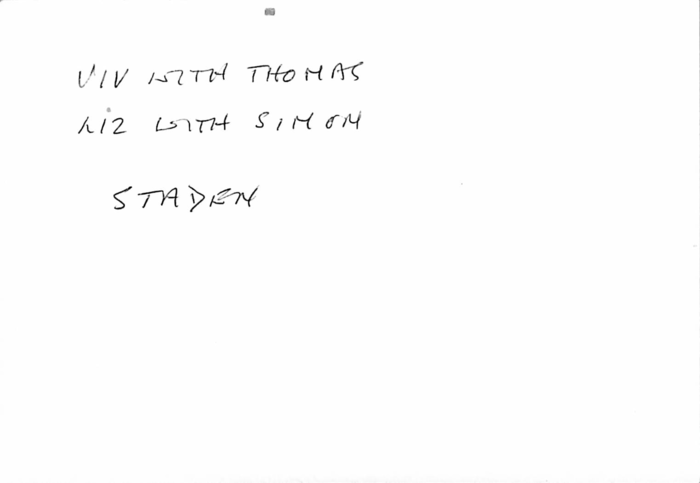 VIV WITH THOMAS
LIZ WITH SIMON
STADEN